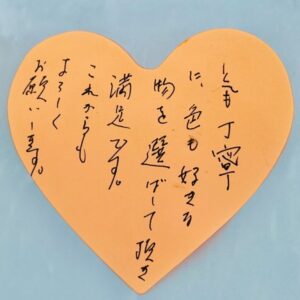 とても丁寧
に、色も好きな
物を選ばして頂き
満足です。
これからも
よろしく
お願いします。